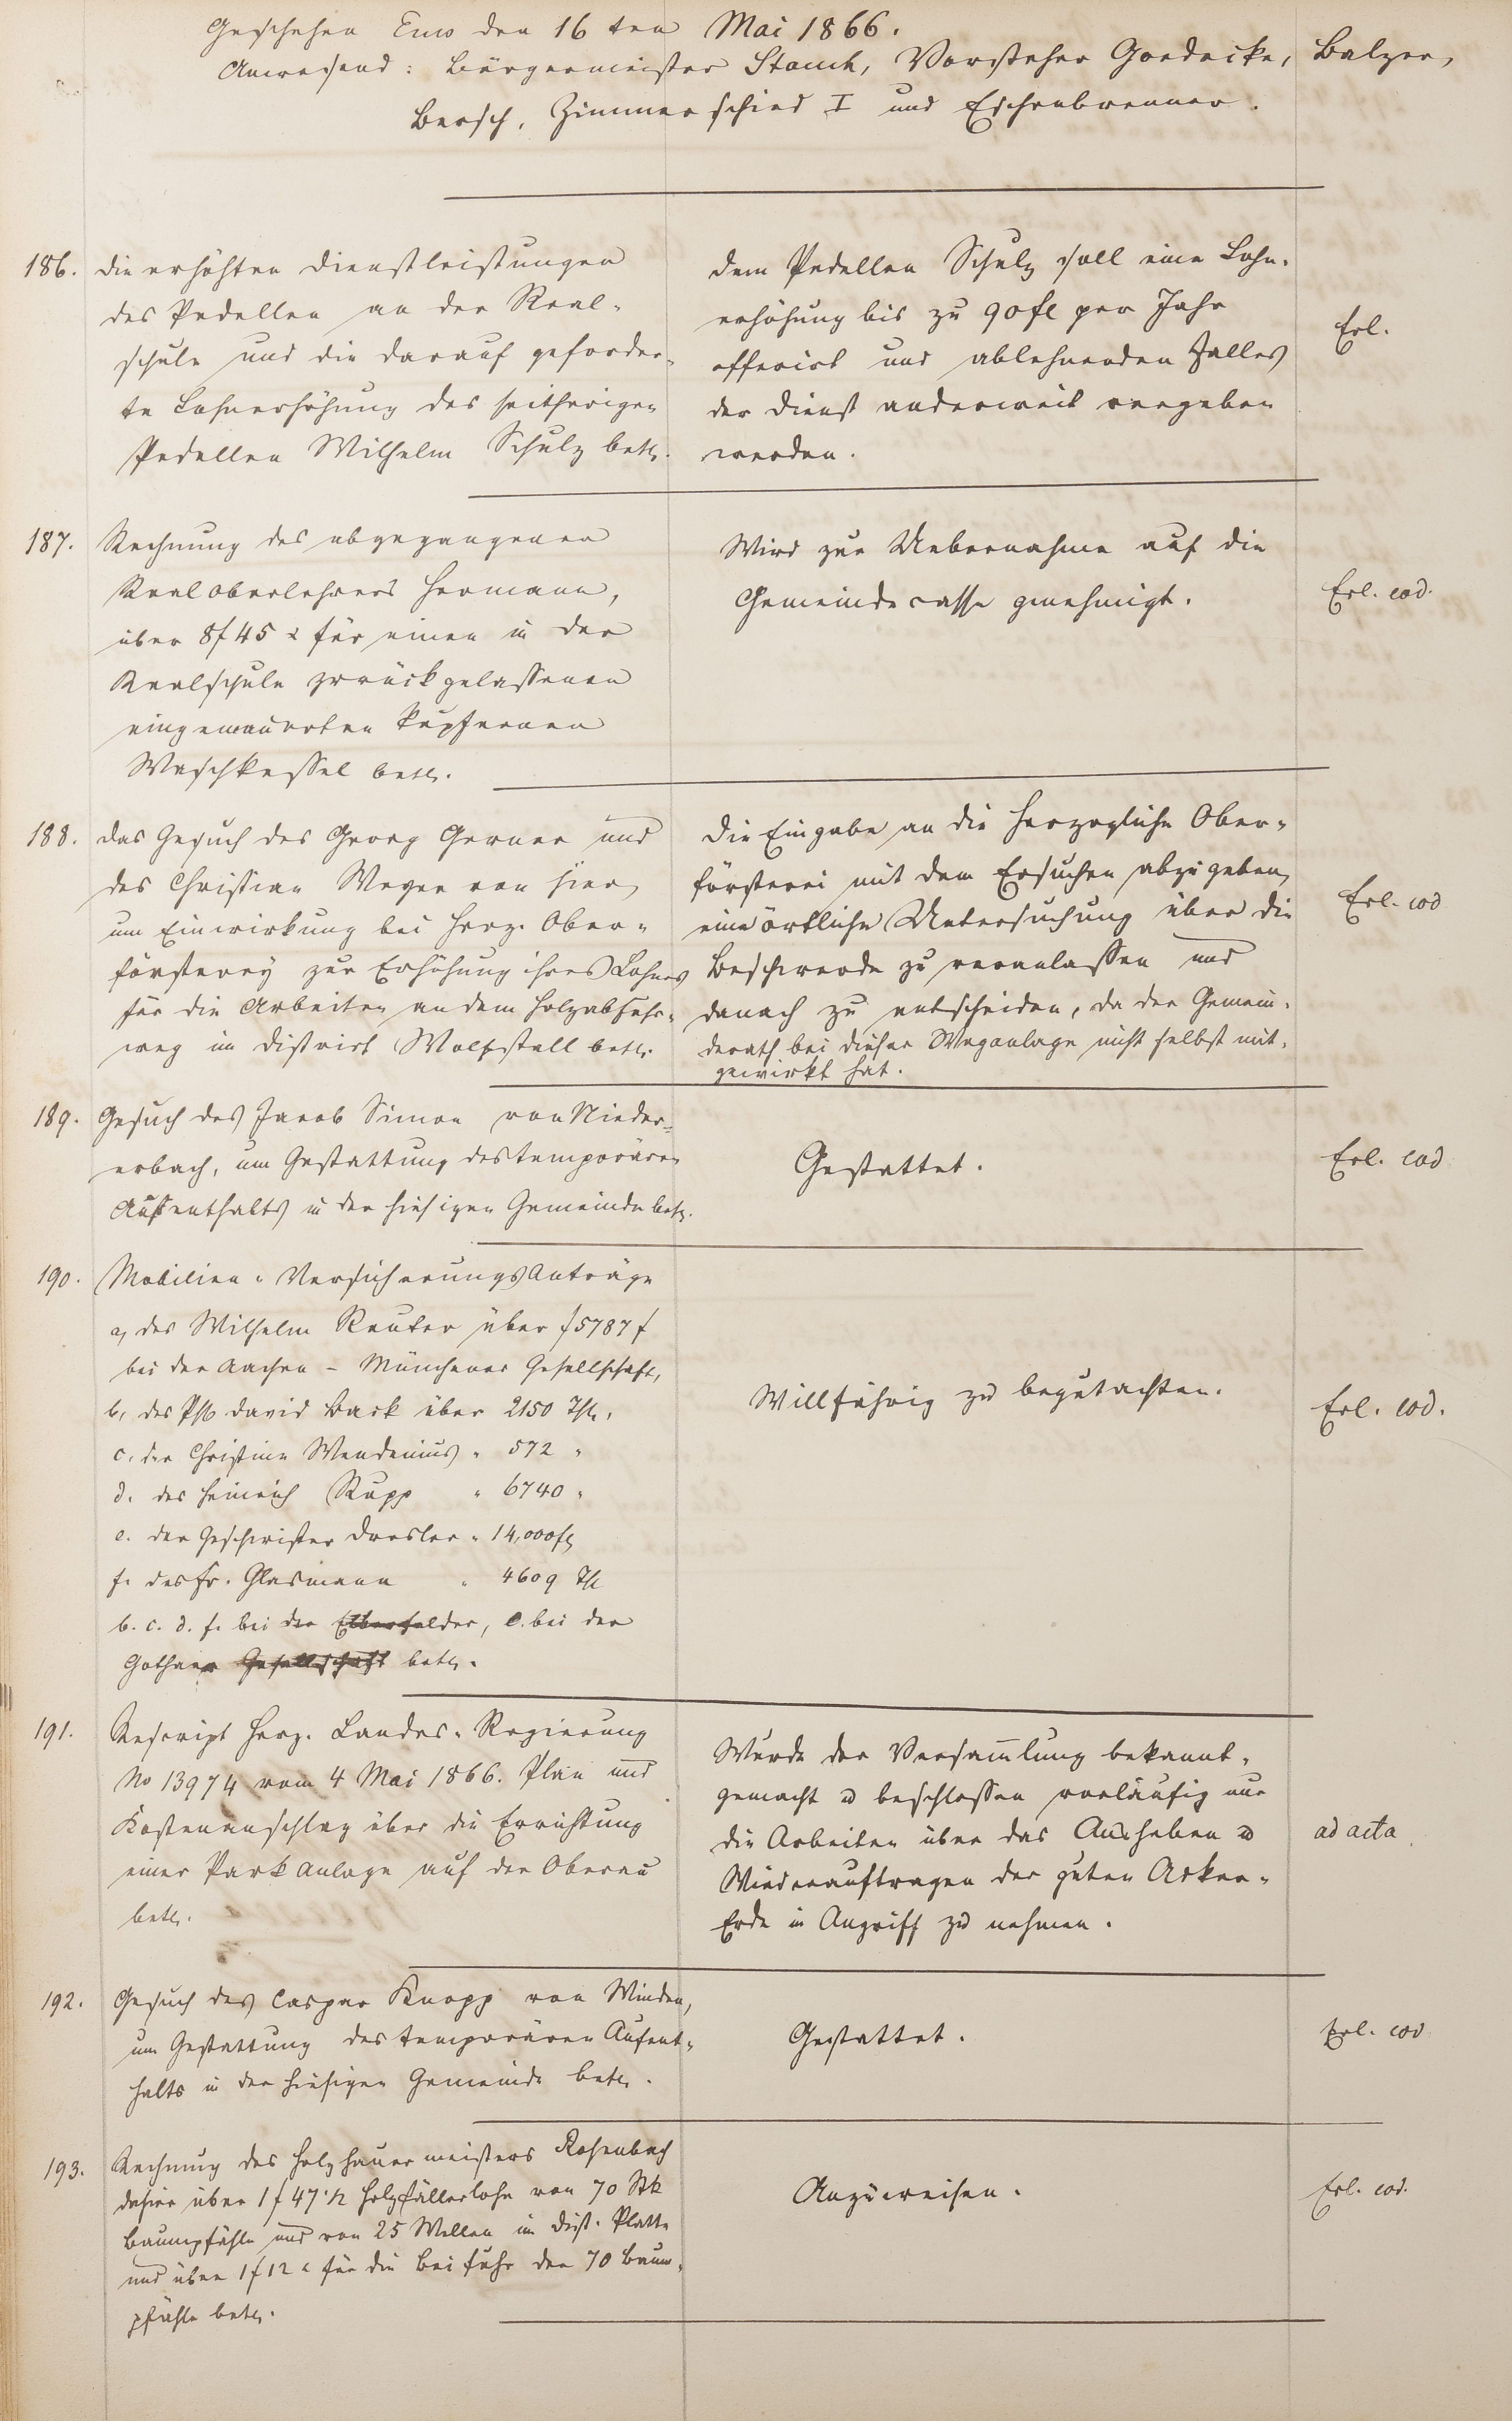 Geschehen Ems den 16ten Mai 1866.
Anwesend: Bürgermeister Stauch, Vorsteher Goedecke, Balzer,
Bersch, Zimmerschied I und Eschenbrenner.
186.
die erhöhten Dienstleistungen
des Pedellen an der Real-
schule und die darauf geforder-
te Lohnerhöhung des seitherigen
Pedellen Wilhelm Schulz betr.
dem Pedellen Schulz soll eine Lohn-
erhöhung bis zu 90 fl per Jahr
offerirt und ablehnenden Falles
der Dienst anderweit vergeben
werden.
Erl.
187.
Rechnung des abgegangenen
Realoberlehrers Hermann,
über 8 f 45 x für einen in der
Realschule zurückgelassenen
eingemauerten kupfernen
Waschkessel betr.
Wird zur Uebernahme auf die
Gemeindecasse genehmigt.
Erl. eod.
188.
das Gesuch des Georg Gerner und
des Christian Weyer von hier,
um Einwirkung bei Herz. Ober-
försterey zur Erhöhung ihres Lohnes
für die Arbeiten an dem Holzabfuhr-
weg im District Wolfstall betr.
Die Eingabe an die Herzogliche Ober-
försterei mit dem Ersuchen abzugeben,
eine örtliche Untersuchung über die
Beschwerde zu veranlassen und
danach zu entscheiden, da der Gemein-
derath bei dieser Weganlage nicht selbst mit-
gewirkt hat.
Erl. eod
189.
Gesuch des Jacob Simon von Nieder-
erbach, um Gestattung des temporären
Aufenthalts in der hiesigen Gemeinde betr.
Gestattet.
Erl. eod
190.
Mobilien-Versicherungs Anträge
a, des Wilhelm Reuter über f 5787 f
bei der Aachen - Münchener Gesellschaft,
b, des Phil David Bark über 2150 Thl,
c. der Christine Wendenius " 572 "
d. des Heinrich Rupp " 6740 "
e. der Geschwister Dresler " 14,000 fl
f. des Fr. Glasmann " 4609 Thl
b. c. d. f. bei der Elberfelder, e. bei der
Gothaer Gesellschaft betr.
Willfährig zu begutachten.
Erl. eod.
191.
Rescript Herz. Landes-Regierung
No 13974 vom 4 Mai 1866. Plan und
Kostenanschlag über die Errichtung
einer Park Anlage auf der Oberau
betr.
Wurde der Versammlung bekannt-
gemacht & beschlossen vorläufig nur
die Arbeiten über das Ausheben &
Wiederauftragen der guten Acker-
Erde in Angriff zu nehmen.
ad acta
192.
Gesuch des Caspar Knopp von Winden,
um Gestattung des temporären Aufent-
halts in der hiesigen Gemeinde betr.
Gestattet.
Erl. eod
193.
Rechnung des Holzhauermeisters Rosenbach
dahier über 1 f 47 1/2 Holzfällerlohn von 70 Stk
Baumpfähle und von 25 Wellen im Dist. Platte
und über 1 f 12 x für die Beifuhr der 70 Baum-
pfähle betr.
Anzuweisen.
Erl. eod.